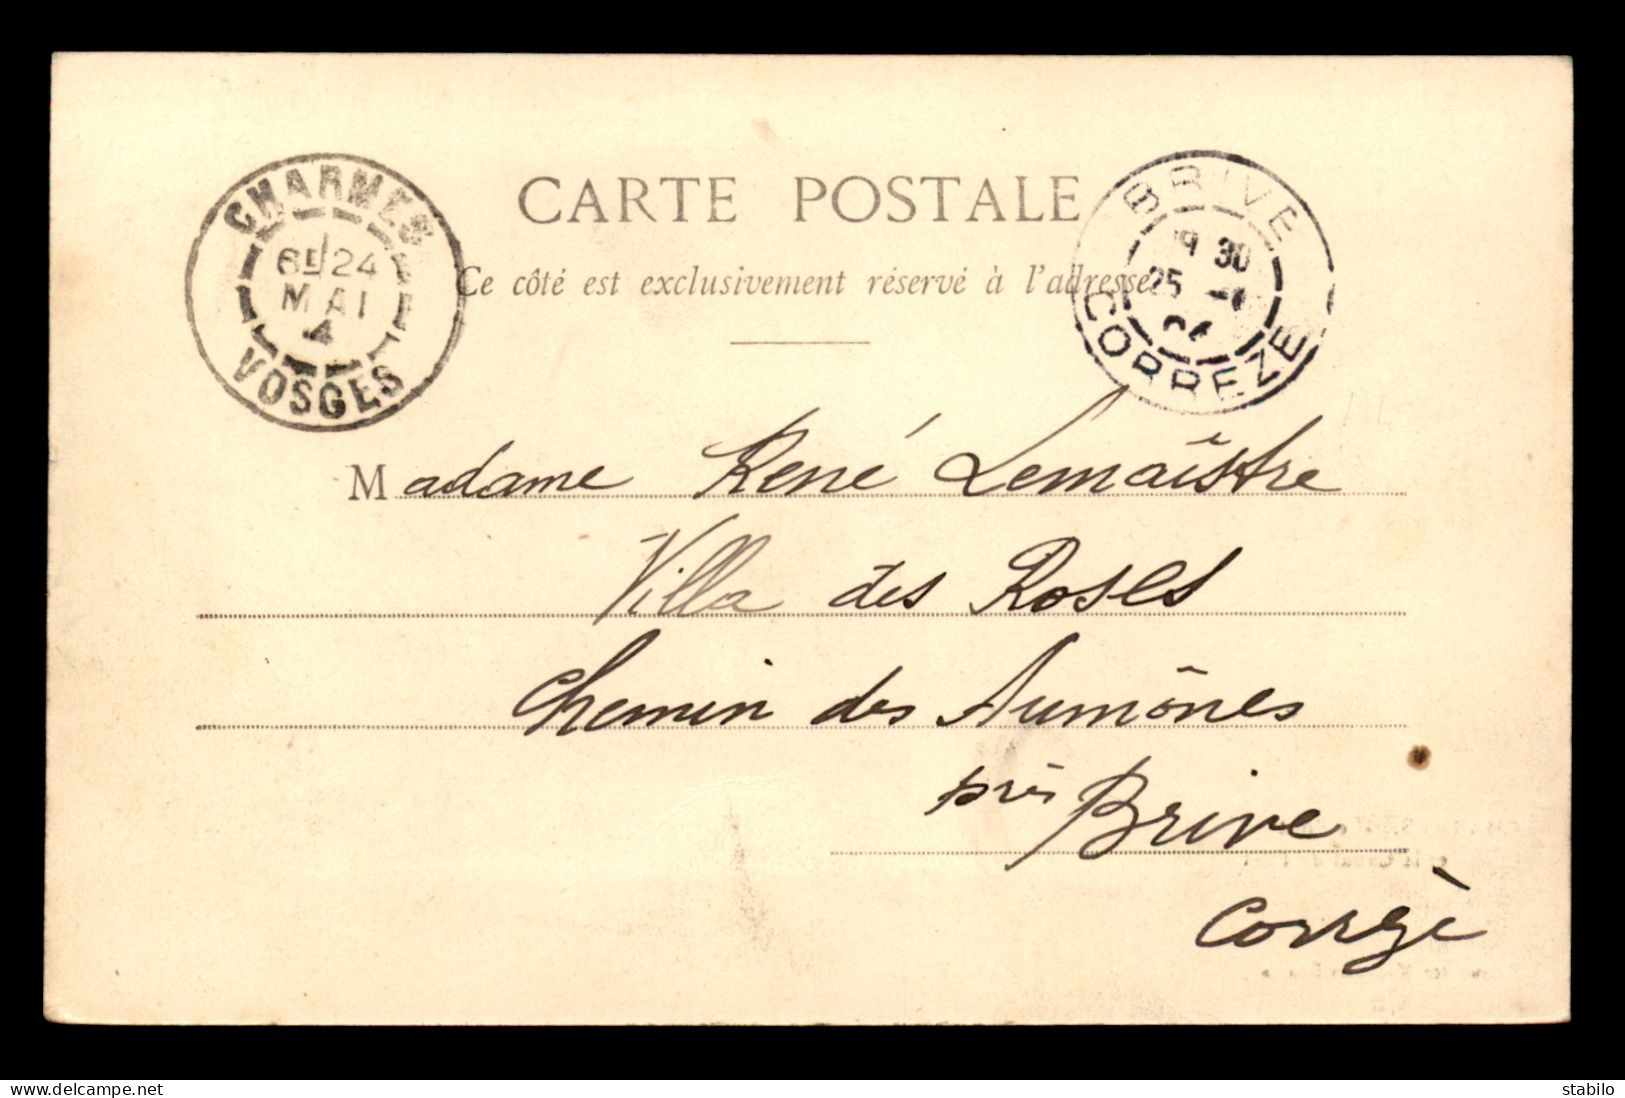 CARTE POSTALE
Ce côté est exclusivement réservé à l'adresse
CHARMES
6E 24
MAI
4
VOSGES
BRIVE
9 30
25
CORREZE
Madame René Lemaîstre
Villa des Roses
Chemin des Aumônes
près Brive
Corrèze
delcampe.net
stabilo